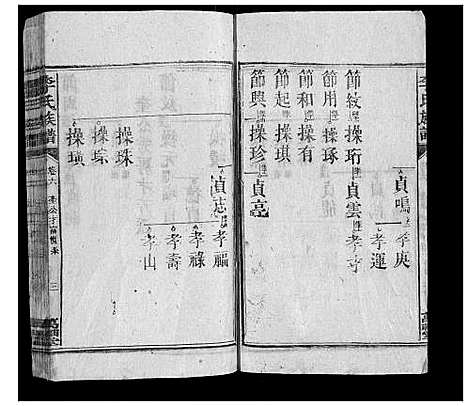 李氏族譜
貞鳴 孝庚
孝運
節紋 操珩 貞雲 孝寺
節用 操環
節和 操有
節起 操琪
節興 操珍 貞亮
貞志 孝福
孝祿
操珠 孝壽
操琮 孝山
操璜
李氏族譜 卷六 三